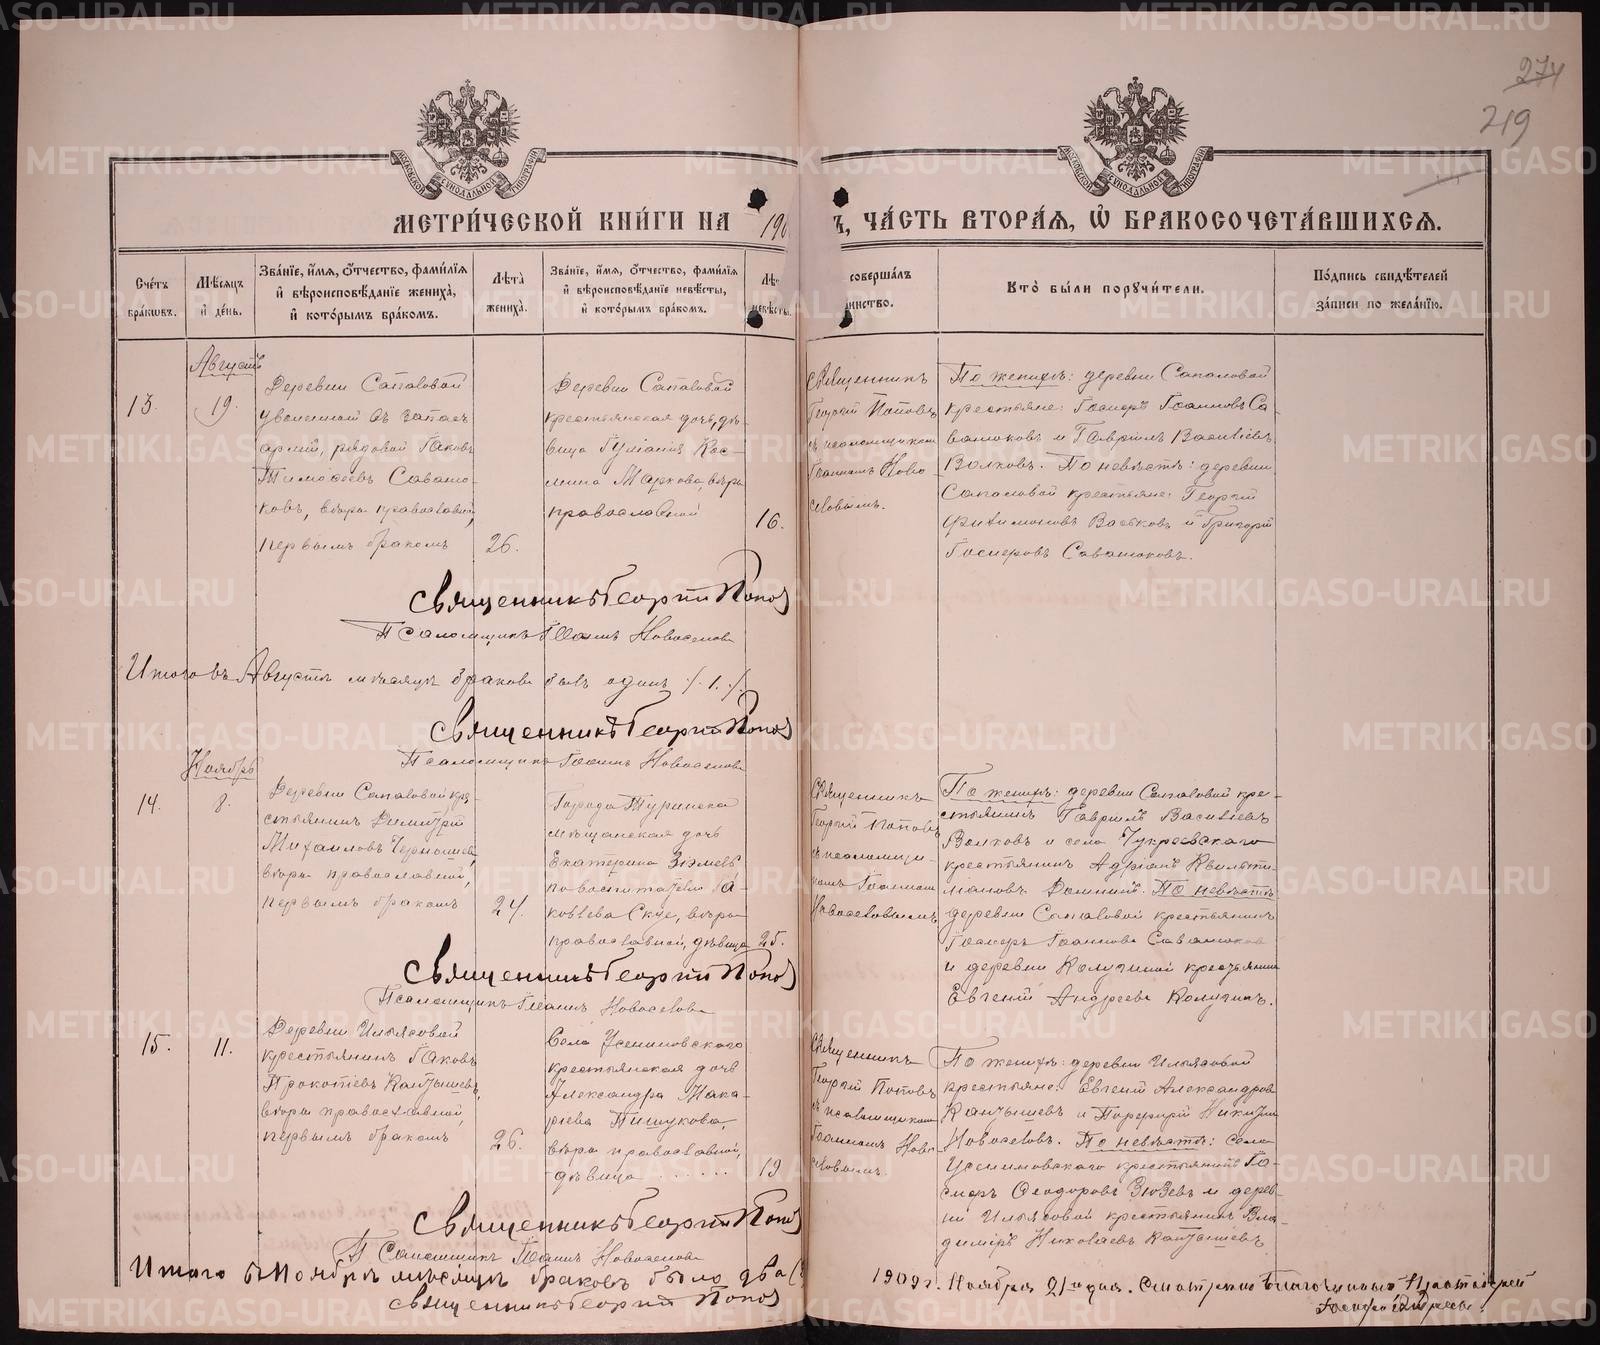 274
219
МЕТРИ́ЧЕСКОЙ КНИ́ГИ НА 190
Ъ, ЧА́СТЬ ВТОРА́Я, Ѡ҆ БРАКОСОЧЕТА́ВШИХСЯ.
Сче́тъ бра́кѡвъ.
Мѣ́сяцъ и҆ де́нь.
Зва́нїе, и҆́мя, ѻ҆́тчество, фами́лїя и҆ вѣроисповѣ́данїе жениха̀, и҆ кото́рымъ бра́комъ.
Лѣ́та жениха̀.
Зва́нїе, и҆́мя, ѻ҆́тчество, фами́лїя и҆ вѣроисповѣ́данїе невѣ́сты, и҆ кото́рымъ бра́комъ.
Лѣ́т невѣ́сты.
соверша́лъ
инство.
Кто̀ бы́ли поручи́тели.
По́дпись свидѣ́телей за́писи по жела́нїю.
Августъ
13.
19.
Деревни Сапаловой
уволенный въ запасъ
арміи, рядовой Іаковъ
Тимоѳеевъ Савато-
ковъ, вѣры православной,
первымъ бракомъ
26.
Деревни Сапаловой
крестьянская дочь, дѣ-
вица Іуліанія Кос-
мина Маркова, вѣры
православной
16.
Священникъ
Георгій Поповъ
съ псаломщикомъ
Іоанномъ Ново-
селовымъ.
По женихѣ: деревни Сапаловой
крестьяне: Іоанновъ Са-
ватоковъ и Гавріилъ Васильевъ
Волковъ. По невѣстѣ: деревни
Сапаловой крестьяне: Георгій
Филимоновъ Васьковъ и Григорій
Саватоковъ.
Священникъ Георгій Поповъ
Псаломщикъ Іоаннъ Новоселовъ
Итого въ Августѣ мѣсяцѣ браковъ былъ одинъ /.1./.
Священникъ Георгій Поповъ
Псаломщикъ Іоаннъ Новоселовъ
Ноябрь
14.
8.
Деревни Сапаловой кре-
стьянинъ Димитрій
Михаиловъ Чернышевъ,
вѣры православной,
первымъ бракомъ
24.
Города Туринска
мѣщанская дочь
Екатерина
по воспитателю Іа-
ковлева вѣры
православной, дѣвица
25.
Священникъ
Георгій Поповъ
съ псаломщи-
комъ Іоанномъ
Новоселовымъ.
По женихѣ: деревни Сапаловой кре-
стьянинъ Гавріилъ Васильевъ
Волковъ и села Чукреевскаго
крестьянинъ Адріанъ
По невѣстѣ:
деревни Сапаловой крестьянинъ
Іоанновъ Саватоковъ
и деревни Калугиной крестьянинъ
Евгеній Андреевъ Калугинъ.
Священникъ Георгій Поповъ
Псаломщикъ Іоаннъ Новоселовъ
15.
11.
Деревни Ильясовой
крестьянинъ Іаковъ
Прокопіевъ Калтышевъ,
вѣры православной,
первымъ бракомъ
26.
Села Усениновскаго
крестьянская дочь
Александра Мака-
рьева Пишукова,
вѣры православной,
дѣвица . . . . . .
19
Священникъ
Георгій Поповъ
съ псаломщикомъ
Іоанномъ Ново-
селовымъ.
По женихѣ: деревни Ильясовой
крестьяне: Евгеній Александровъ
Калтышевъ и Порфирій Никитинъ
Новоселовъ. По невѣстѣ: села
Усениновскаго крестьянинъ
Ѳеодоровъ Зюзевъ и дерев-
ни Ильясовой крестьянинъ Вла-
диміръ Николаевъ Калтышевъ.
Священникъ Георгій Поповъ
Псаломщикъ Іоаннъ Новоселовъ
Итого въ Ноябрѣ мѣсяцѣ браковъ было два (
Священникъ Георгій Поповъ
1909 г. Ноября 21го дня. Смотрено Благочинный Протоіерей